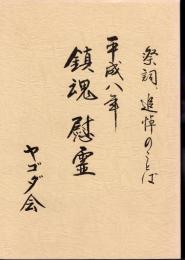 祭詞、追悼のことば
平成八年
鎮魂 慰霊
ヤゴダ会